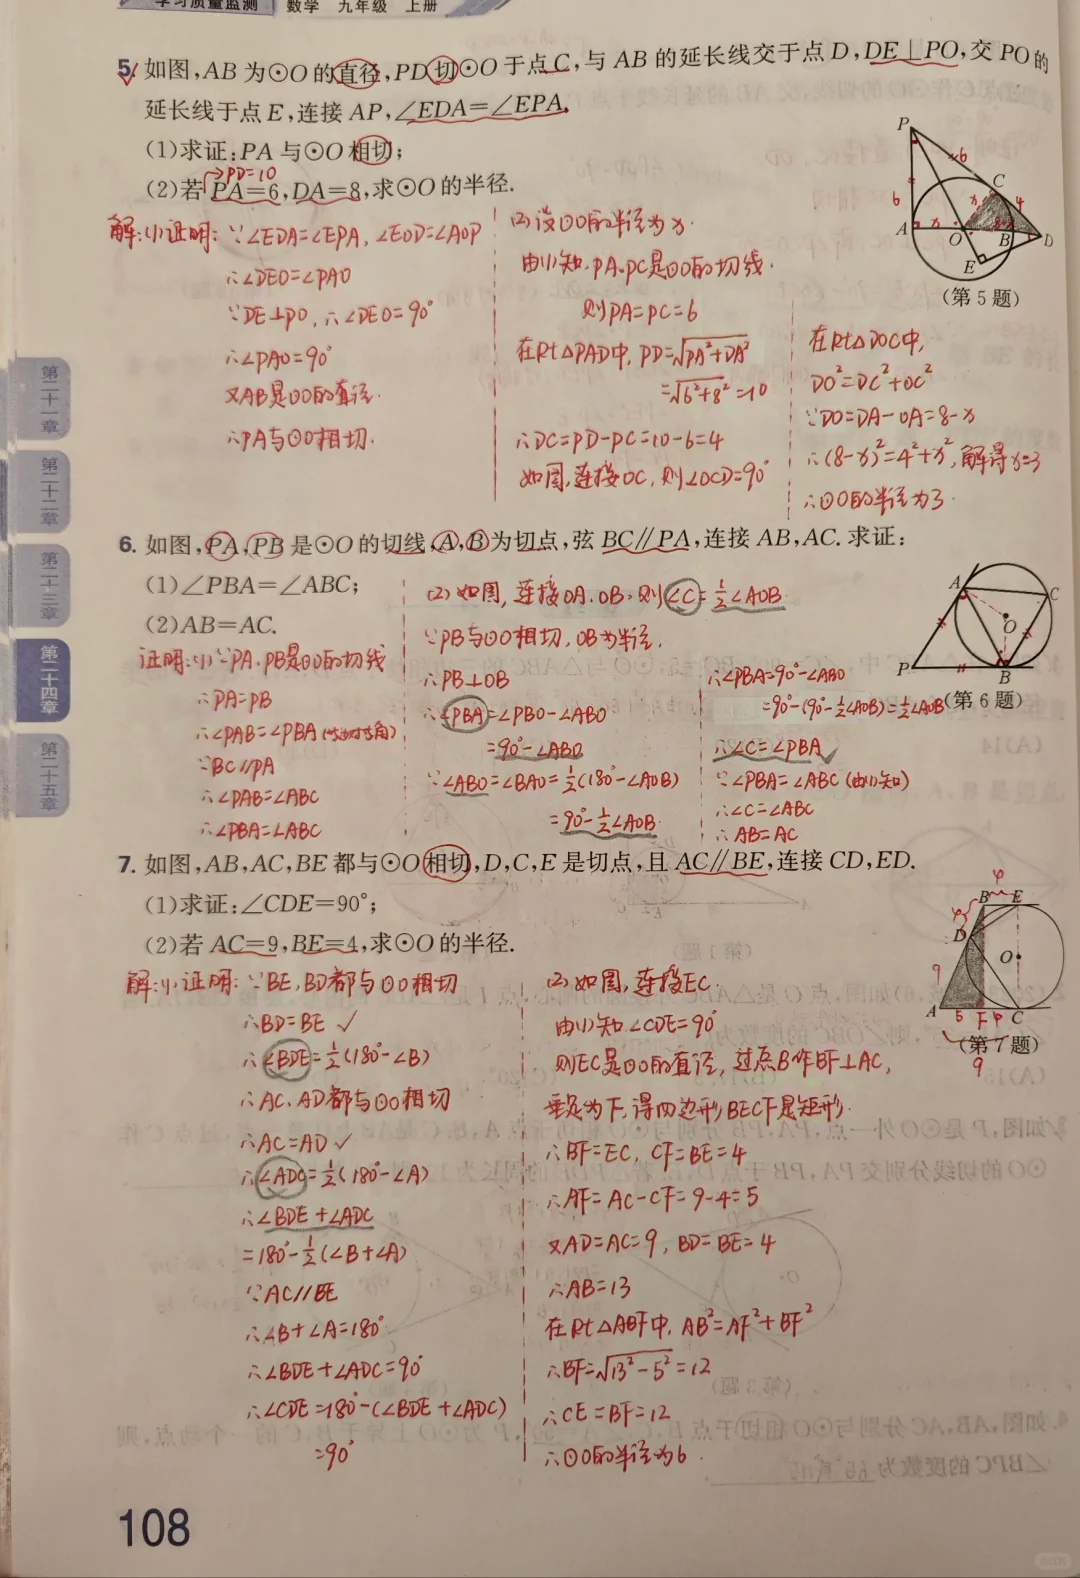 学习质量监测 数学 九年级 上册
5. 如图,AB为⊙O的直径,PD切⊙O于点C,与AB的延长线交于点D,DE⊥PO,交PO的
延长线于点E,连接AP,∠EDA=∠EPA.
(1)求证:PA与⊙O相切;
PD=10
(2)若PA=6,DA=8,求⊙O的半径.
解:(1)证明:∵∠EDA=∠EPA,∠EOD=∠AOP
∴∠DEO=∠PAO
∵DE⊥PO,∴∠DEO=90°
∴∠PAO=90°
又AB是⊙O的直径.
∴PA与⊙O相切.
(2)设⊙O的半径为x.
由(1)知,PA、PC是⊙O的切线.
则PA=PC=6
在Rt△PAD中,PD=√PA²+DA²
=√6²+8²=10
∴DC=PD-PC=10-6=4
如图,连接OC,则∠OCD=90°
在Rt△DOC中,
DO²=DC²+OC²
∵DO=DA-OA=8-x
∴(8-x)²=4²+x²,解得x=3
∴⊙O的半径为3.
P
6
C
6
x
4
A
x
O
B
D
E
(第5题)
6. 如图,PA,PB是⊙O的切线,A,B为切点,弦BC∥PA,连接AB,AC.求证:
(1)∠PBA=∠ABC;
(2)AB=AC.
证明:(1)∵PA、PB是⊙O的切线
∴PA=PB
∴∠PAB=∠PBA(等边对等角)
∵BC∥PA
∴∠PAB=∠ABC
∴∠PBA=∠ABC
(2)如图,连接OA、OB,则∠C=½∠AOB
∵PB与⊙O相切,OB为半径.
∴PB⊥OB
∴∠PBA=∠PBO-∠ABO
=90°-∠ABO
∵∠ABO=∠BAO=½(180°-∠AOB)
=90°-½∠AOB
∴∠PBA=90°-∠ABO
=90°-(90°-½∠AOB)=½∠AOB
∴∠C=∠PBA
∵∠PBA=∠ABC(由(1)知)
∴∠C=∠ABC
∴AB=AC
A
C
O
P
B
(第6题)
7. 如图,AB,AC,BE都与⊙O相切,D,C,E是切点,且AC∥BE,连接CD,ED.
(1)求证:∠CDE=90°;
(2)若AC=9,BE=4,求⊙O的半径.
解:(1)证明:∵BE,BD都与⊙O相切
∴BD=BE ✓
∴∠BDE=½(180°-∠B)
∴AC、AD都与⊙O相切
∴AC=AD ✓
∴∠ADC=½(180°-∠A)
∴∠BDE+∠ADC
=180°-½(∠B+∠A)
∵AC∥BE
∴∠B+∠A=180°
∴∠BDE+∠ADC=90°
∴∠CDE=180°-(∠BDE+∠ADC)
=90°
(2)如图,连接EC.
由(1)知∠CDE=90°
则EC是⊙O的直径,过点B作BF⊥AC,
垂足为F,得四边形BECF是矩形.
∴BF=EC,CF=BE=4
∴AF=AC-CF=9-4=5
又AD=AC=9,BD=BE=4
∴AB=13
在Rt△ABF中,AB²=AF²+BF²
∴BF=√13²-5²=12
∴CE=BF=12
∴⊙O的半径为6.
4
B
E
4
D
O
9
A
5
F
4
C
9
(第7题)
第二十一章
第二十二章
第二十三章
第二十四章
第二十五章
108